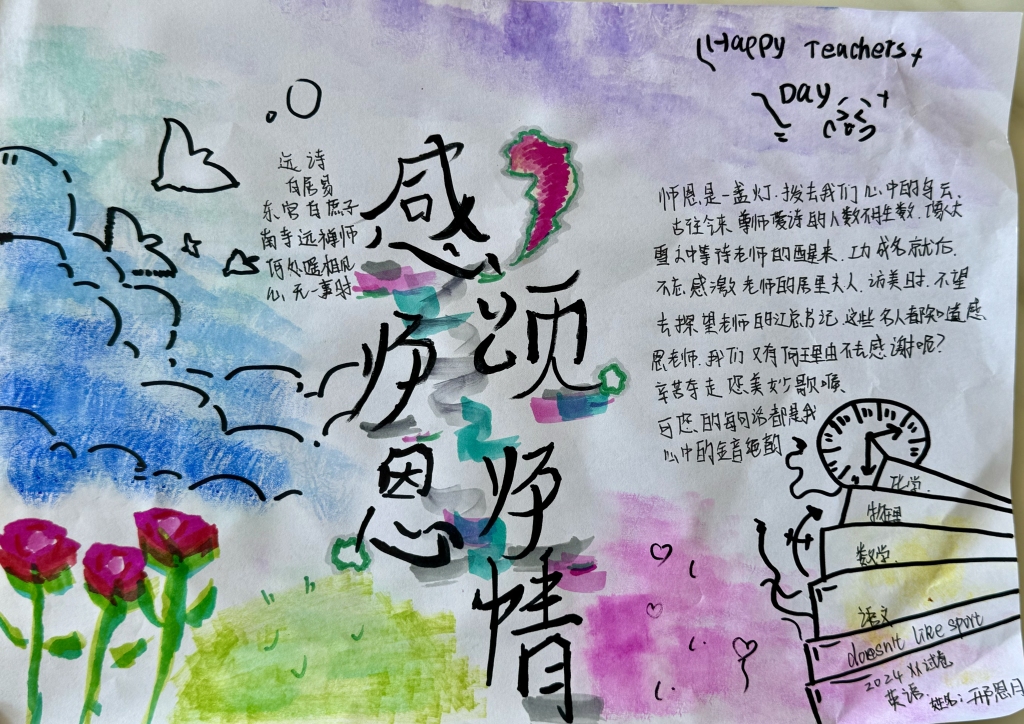 Happy Teachers
Day
远诗
白居易
东宫白庶子
南寺远禅师
何处遥相见
心无一事时
感
师
恩
颂
师
情
师恩是一盏灯.拨去我们心中的乌云.
古往今来.尊师爱诗的人数不胜数.
重之中等待老师的醒来.功成名就后.
不忘感激老师的居里夫人.访美时.不望
去探望老师的江总书记.这些名人都知道感
恩老师.我们又有何理由不去感谢呢?
可您的每句话都是我
心中的
化学.
物理
数学.
语文
doesn't like sport
2024 从试卷
英语.
姓名:邢恩月